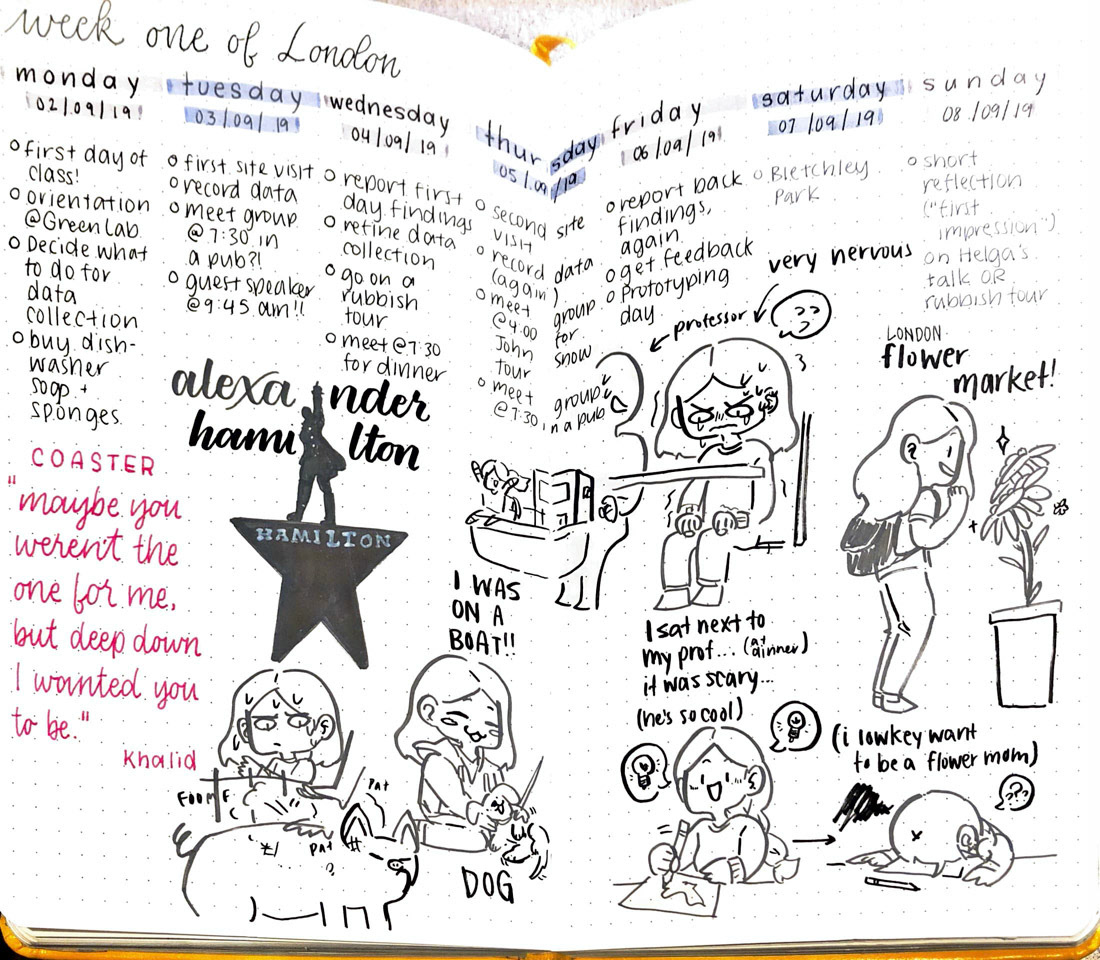 week one of London
monday
02/09/19
o first day of
class!
o orientation
@Green Lab
o Decide what
to do for
data
collection
o buy dish-
washer
soap +
sponges
tuesday
03/09/19
o first site visit
o record data
o meet group
@ 7:30 in
a pub?!
o guest speaker
@ 9:45 am!!
wednesday
04/09/19
o report first
day findings
o refine data
collection
o go on a
rubbish
tour
o meet @ 7:30
for dinner
thursday
05/09/19
o second site
visit
o record data
(again)
o meet group
@ 4:00 for
John Snow
tour
o meet group
@ 7:30 in a pub
friday
06/09/19
o report back
findings,
again
o get feedback
o Prototyping
day
saturday
07/09/19
o Bletchley
Park
sunday
08/09/19
o short
reflection
("first
impression")
on Helga's
talk OR
rubbish tour
alexander
hamilton
HAMILTON
COASTER
"maybe you
weren't the
one for me,
but deep down
I wanted you
to be."
Khalid
PAT
PAT
DOG
I WAS
ON A
BOAT!!
very nervous
professor
I sat next to
my prof... (at dinner)
it was scary...
(he's so cool)
LONDON
flower
market!
(i lowkey want
to be a flower mom)
???